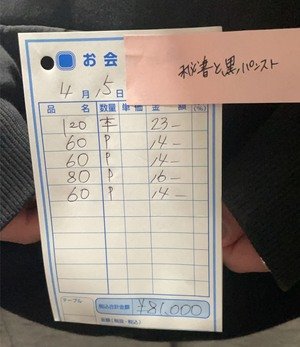 お会
秘書と黒パンスト
4月5日
品名 数量 単価 金額 (%)
120 本 23-
60 P 14-
60 P 14-
80 P 16-
60 P 14-
テーブル
税込合計金額 ¥81,000
金額(税抜・税込)